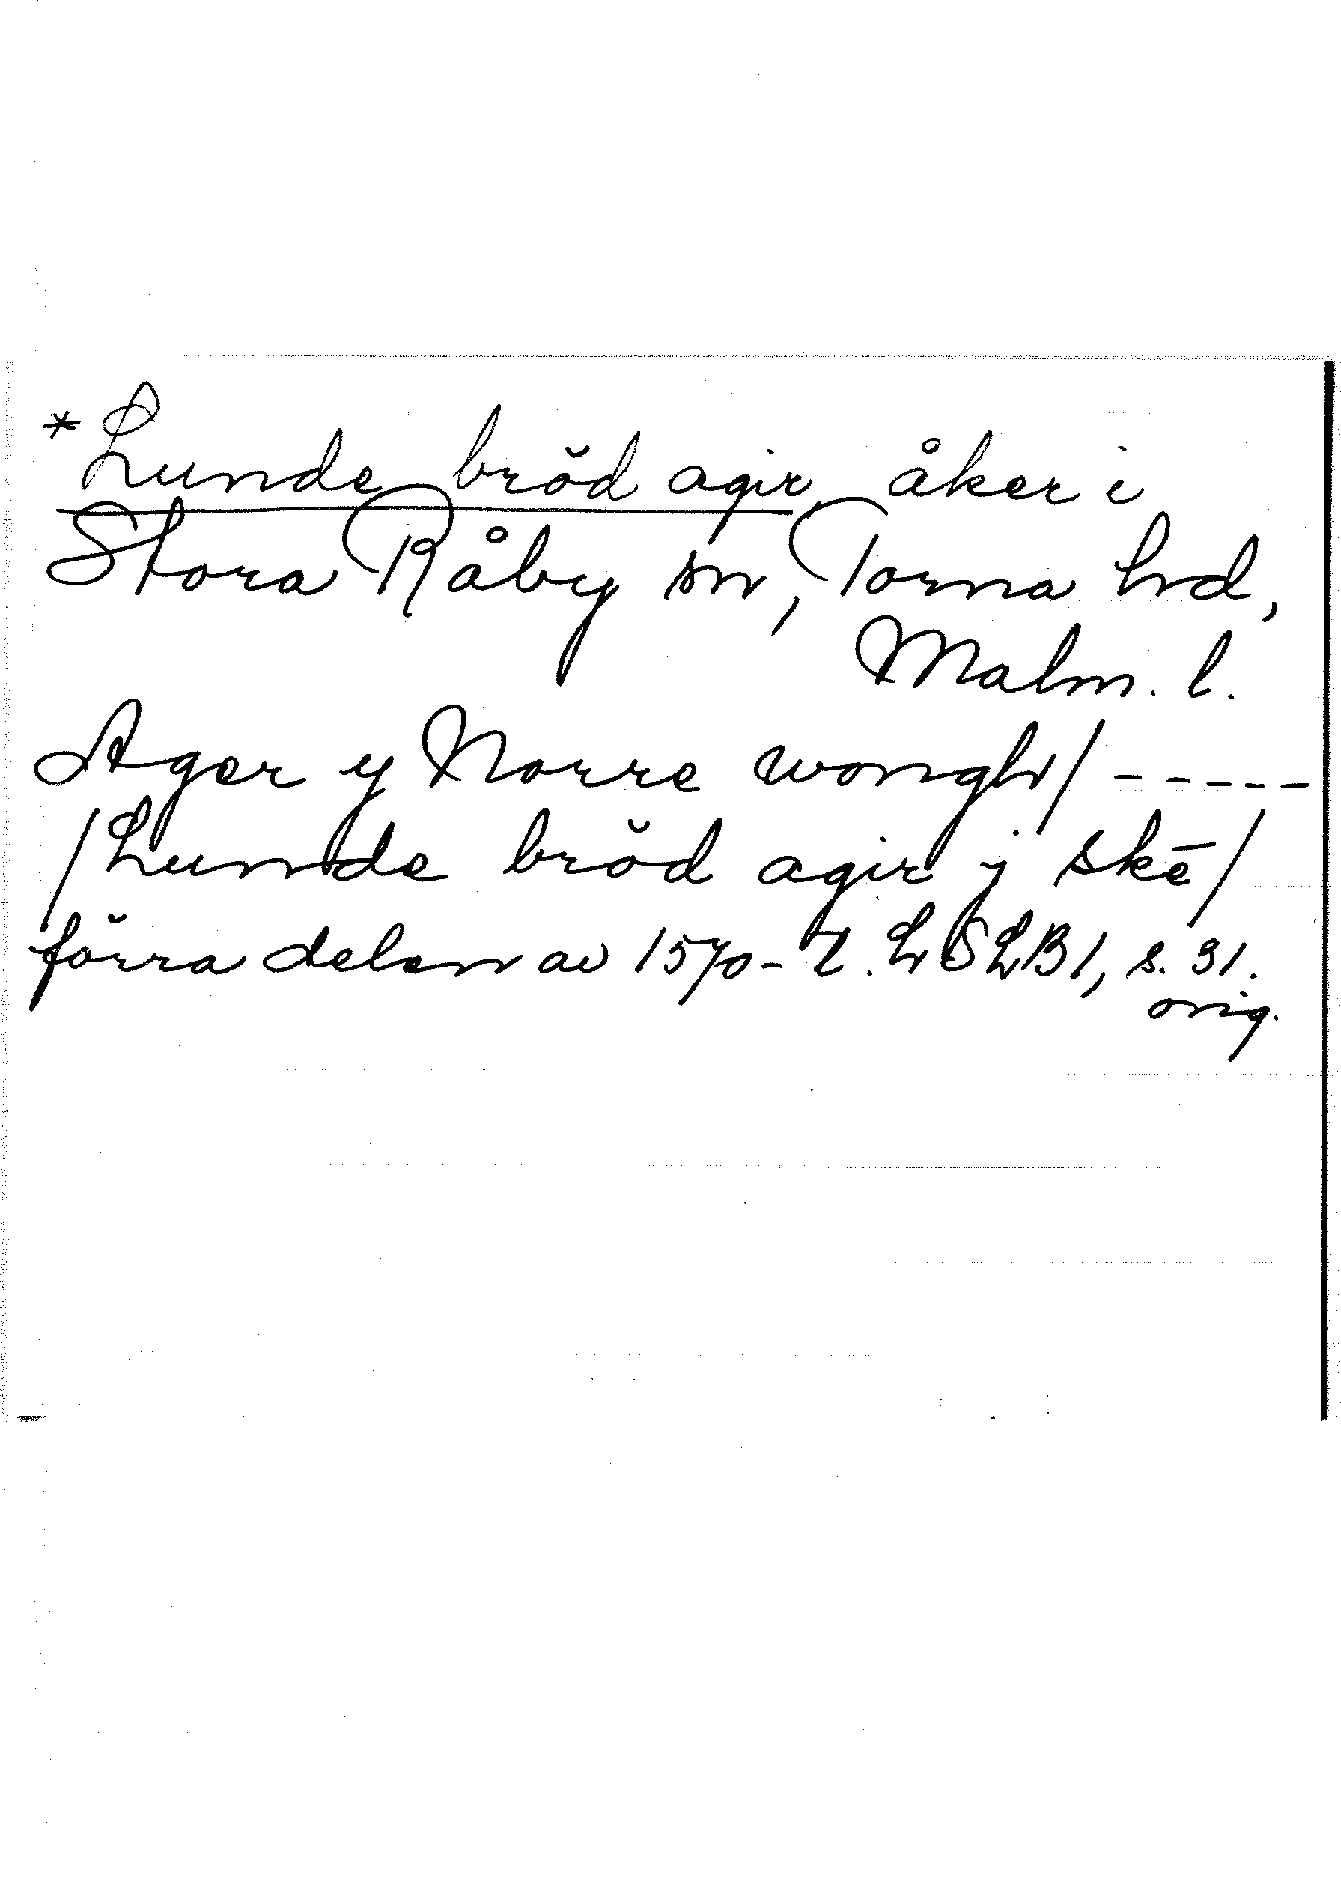 *Lunde bröd agir, åker i
Stora Råby sn, Torna hd,
Malm. l.
Ager y Norre wongh/ -----
/Lunde bröd agir j skē/
förra delen av 1570-t. LSLB1, s. 31.
orig.